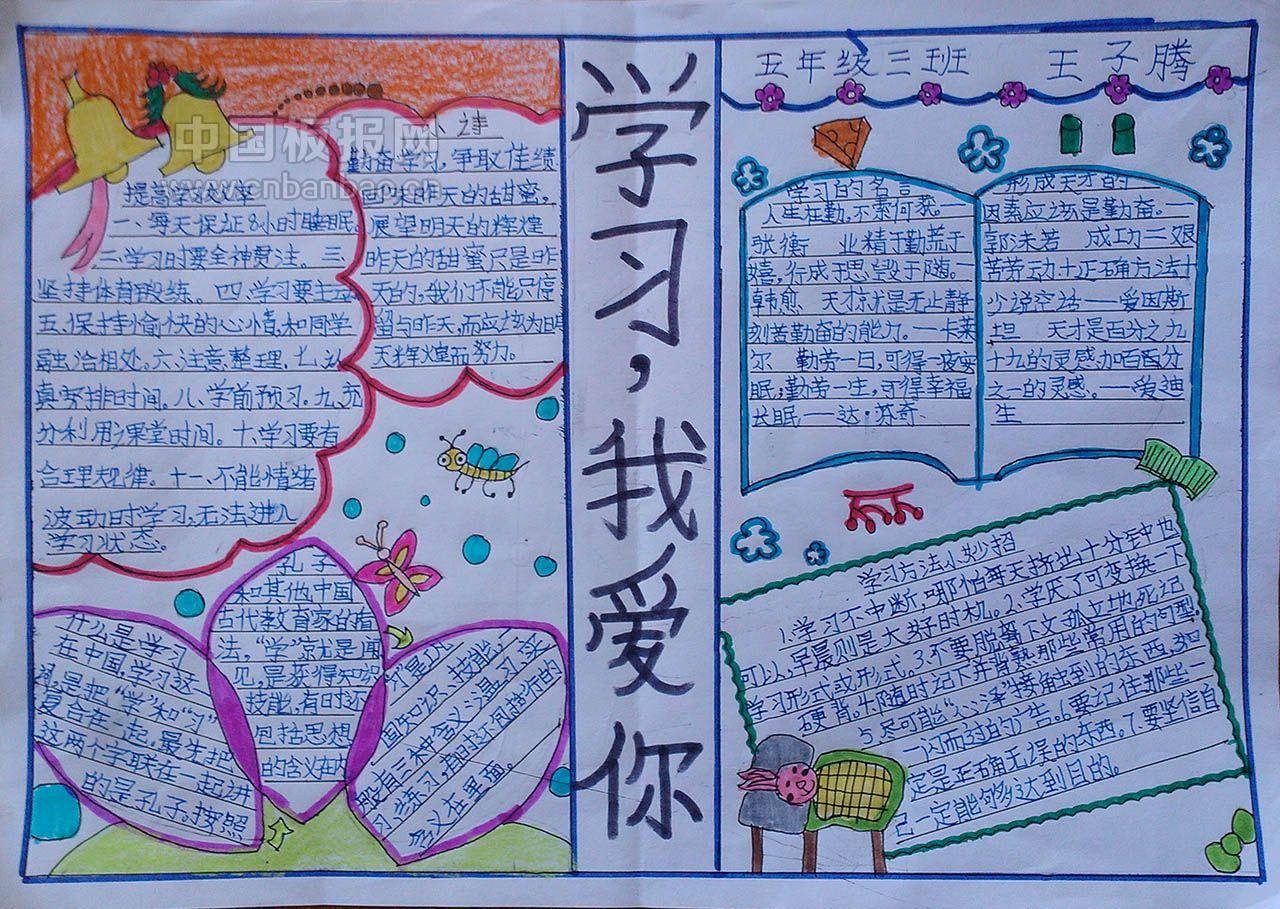 学习，我爱你
五年级三班 王子腾
中国板报网
www.cnbanbao.cn
提高学习效率
一、每天保证8小时睡眠。
二、学习时要全神贯注。三、
坚持体育锻练。四、学习要主动
五、保持愉快的心情,和同学
融洽相处。六、注意整理。七、认
真安排时间。八、学前预习。九、充
分利用课堂时间。十、学习要有
合理规律。十一、不能情绪
波动时学习,无法进入
学习状态。
勤奋学习,争取佳绩
回味昨天的甜蜜。
展望明天的辉煌
昨天的甜蜜只是昨
天的,我们不能只停
留与昨天,而应该为明
天辉煌而努力。
什么是学习
在中国,学习这一
词,是把“学”和“习”
复合在一起,最先把
这两个字联在一起讲
的是孔子,按照
孔子
和其他中国
古代教育家的看
法,“学”就是闻
见,是获得知识
技能,有时还
包括思想
的含义在内
值知识、技能,
般有三种含义:温习、实
习、练习,有时还包括行的
含义在里面。
学习的名言
人生在勤,不素何获。一
张衡 业精于勤荒于
嬉,行成于思,毁于随。一
韩愈 天才就是无止静
刻苦勤奋的能力。一卡莱
尔 勤劳一日,可得一夜安
眠;勤劳一生,可得幸福
长眠——达·芬奇
形成天才的
因素应该是勤奋。一
郭沫若 成功=艰
苦劳动+正确方法+
少说空话——爱因斯
坦 天才是百分之九
十九的灵感,加百分
之一的灵感。——爱迪
生
学习方法小妙招
1.学习不中断,哪怕每天挤出十分钟也
可以,早晨则是大好时机。2.学厌了可变换一下
学习形式或形式。3.不要脱离下文孤立地死记
硬背。4.随时记下并背熟那些常用的句型。
5.尽可能“心译”接触到的东西,如
一闪而过的广告。6.要记住那些一
定是正确无误的东西。7.要坚信自
己一定能够达到目的。